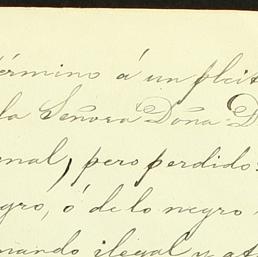 término á un pleit
la Señora Doña D
enal, pero perdido
gro, ó de lo negro
mando ilegal y at